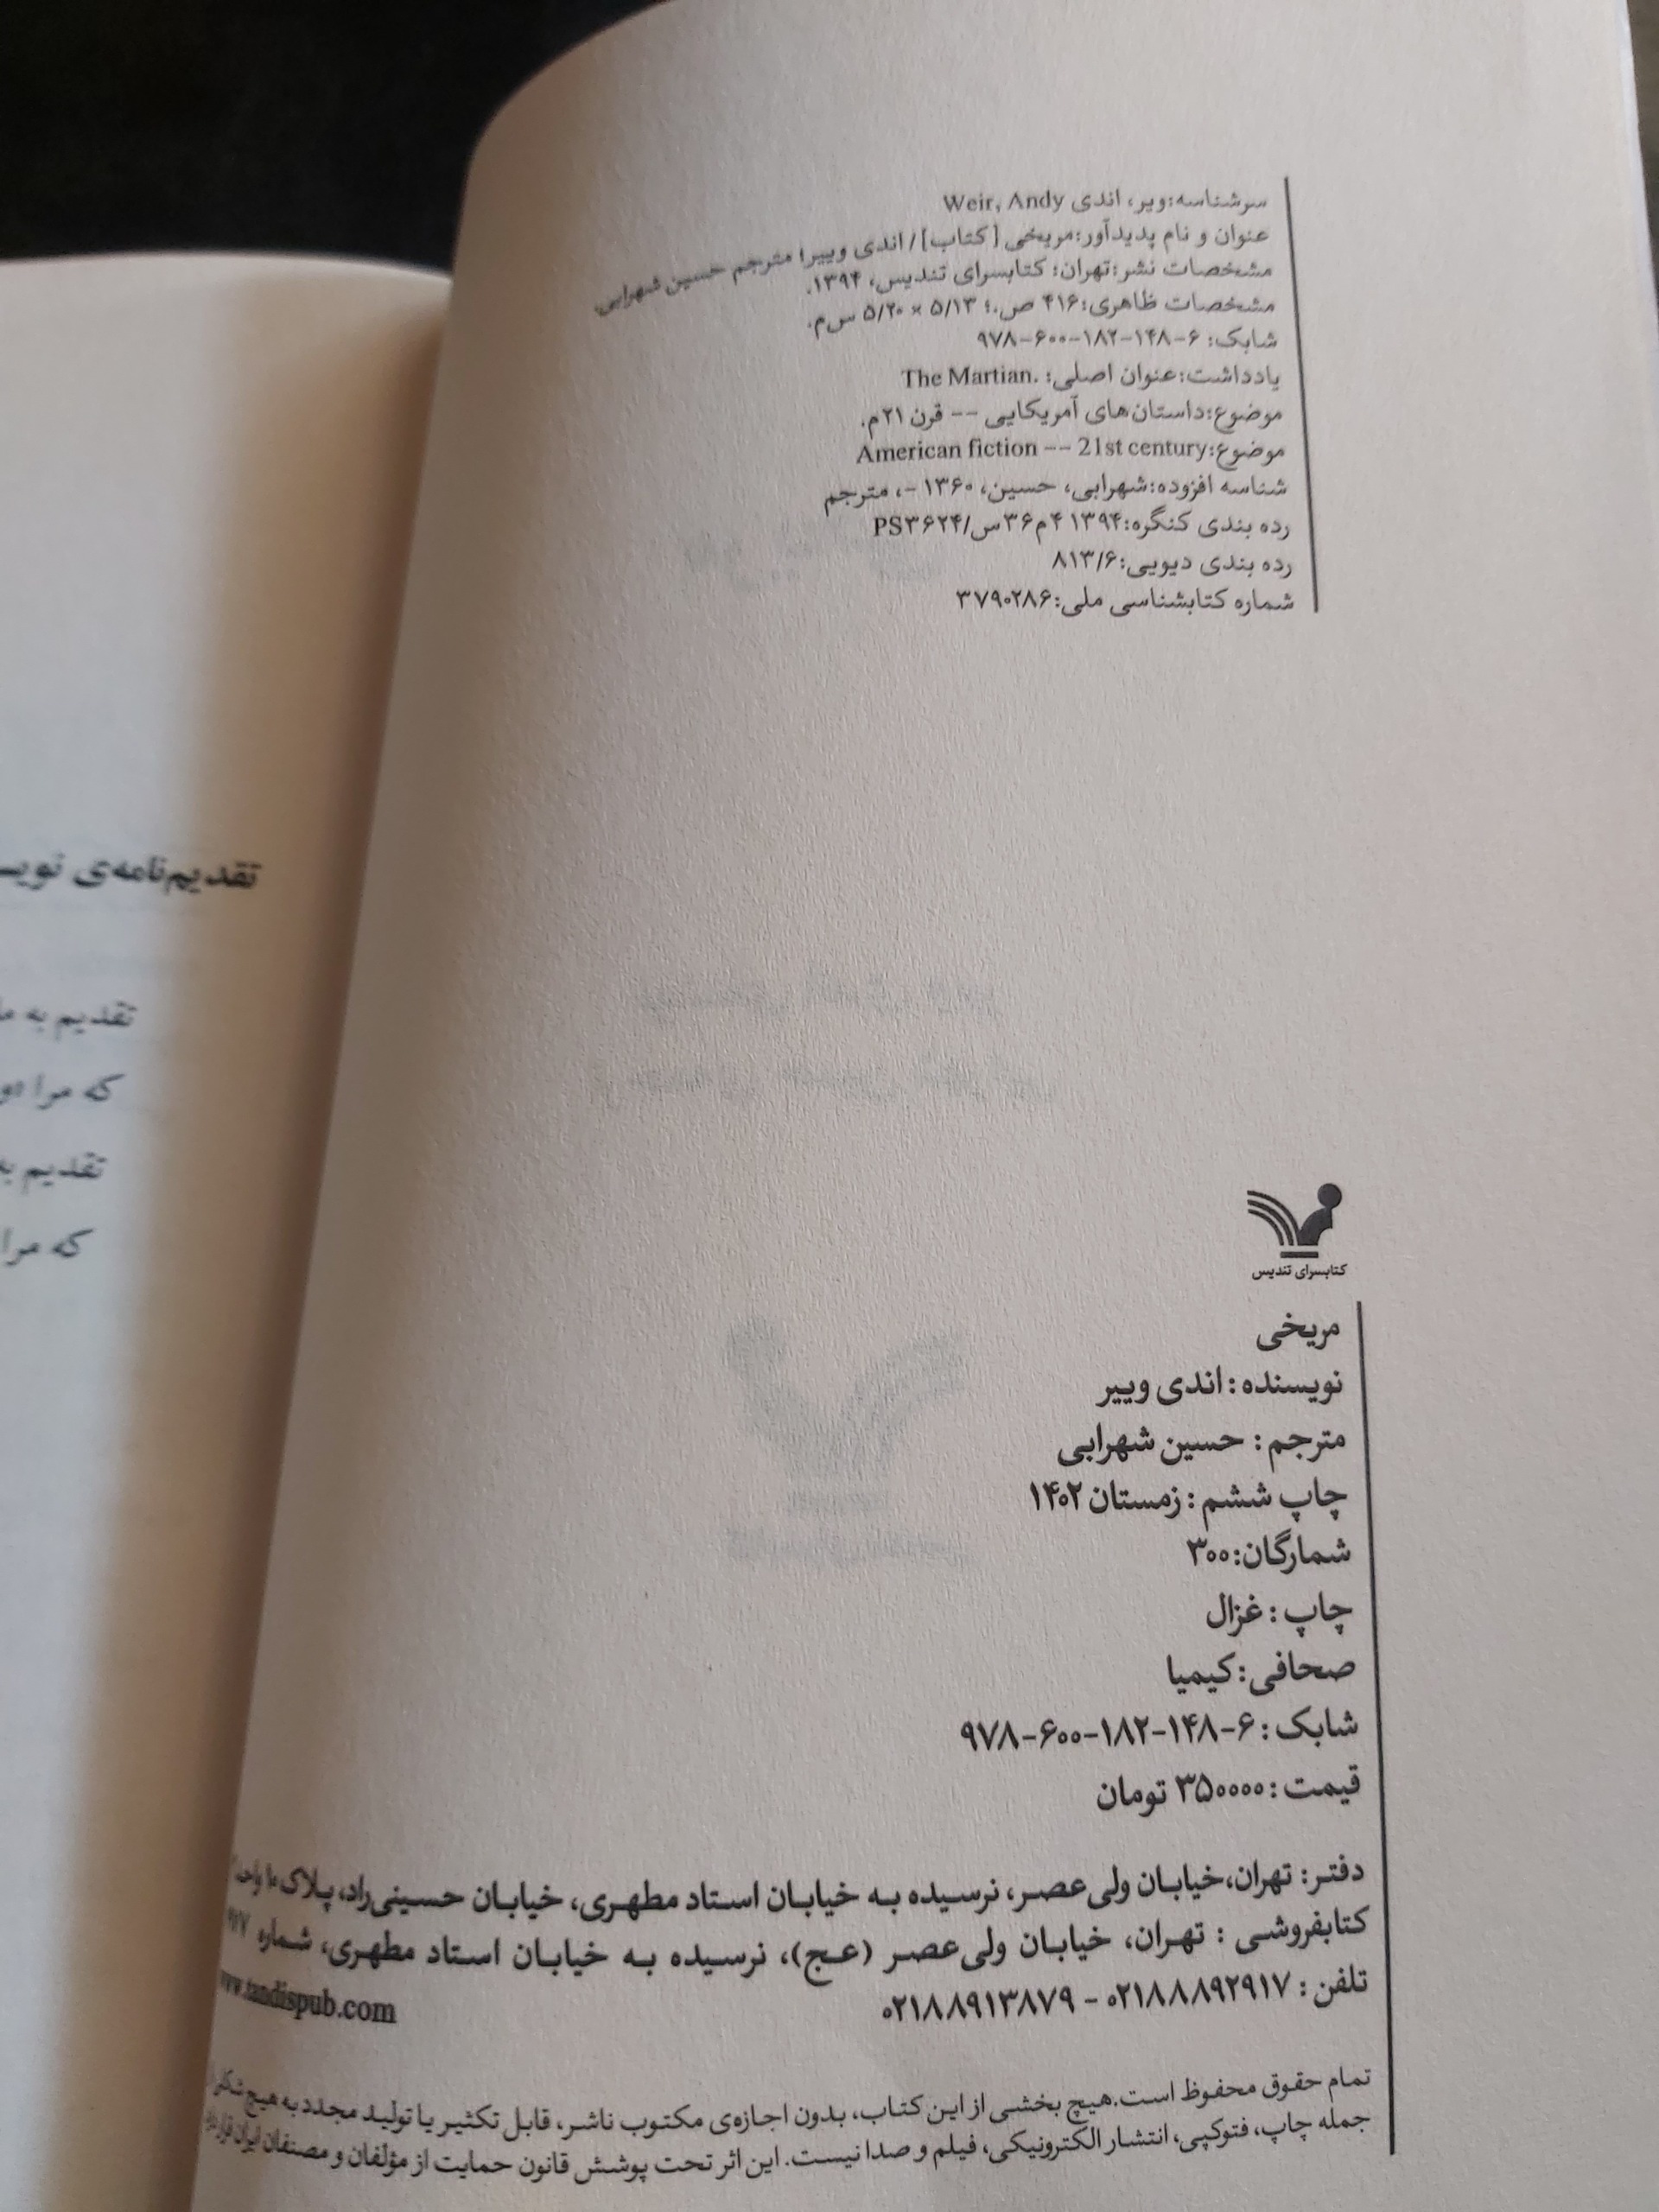 سرشناسه:ویر، اندی Weir, Andy
عنوان و نام پدیدآور:مریخی [کتاب]/ اندی وییر؛ مترجم حسین شهرابی.
مشخصات نشر:تهران: کتابسرای تندیس، ۱۳۹۴.
مشخصات ظاهری:۴۱۶ ص.؛ ۵/۱۳ × ۵/۲۰ س‌م.
شابک: ۶-۱۴۸-۱۸۲-۶۰۰-۹۷۸
یادداشت:عنوان اصلی: The Martian.
موضوع:داستان‌های آمریکایی -- قرن ۲۱م.
موضوع:American fiction -- 21st century
شناسه افزوده:شهرابی، حسین، ۱۳۶۰ -، مترجم
رده بندی کنگره:۱۳۹۴ ۴م۳۶س/PS۳۶۲۴
رده بندی دیویی:۸۱۳/۶
شماره کتابشناسی ملی:۳۷۹۰۲۸۶
کتابسرای تندیس
مریخی
نویسنده : اندی وییر
مترجم : حسین شهرابی
چاپ ششم : زمستان ۱۴۰۲
شمارگان: ۳۰۰
چاپ : غزال
صحافی : کیمیا
شابک : ۶-۱۴۸-۱۸۲-۶۰۰-۹۷۸
قیمت : ۳۵۰۰۰۰ تومان
دفتر: تهران،خیابان ولی‌عصر، نرسیده به خیابان استاد مطهری، خیابان حسینی‌راد، پلاک ۱۰ واحد
کتابفروشی : تهران، خیابان ولی‌عصر (عج)، نرسیده به خیابان استاد مطهری، شماره
تلفن : ۰۲۱۸۸۸۹۲۹۱۷ - ۰۲۱۸۸۹۱۳۸۷۹
www.tandispub.com
تمام حقوق محفوظ است.هیچ بخشی از این کتاب، بدون اجازه‌ی مکتوب ناشر، قابل تکثیر یا تولید مجدد به هیچ شکلی
جمله چاپ، فتوکپی، انتشار الکترونیکی، فیلم و صدا نیست. این اثر تحت پوشش قانون حمایت از مؤلفان و مصنفان ایران قرار
تقدیم‌نامه‌ی
تقدیم به
که مرا
تقدیم
که مرا